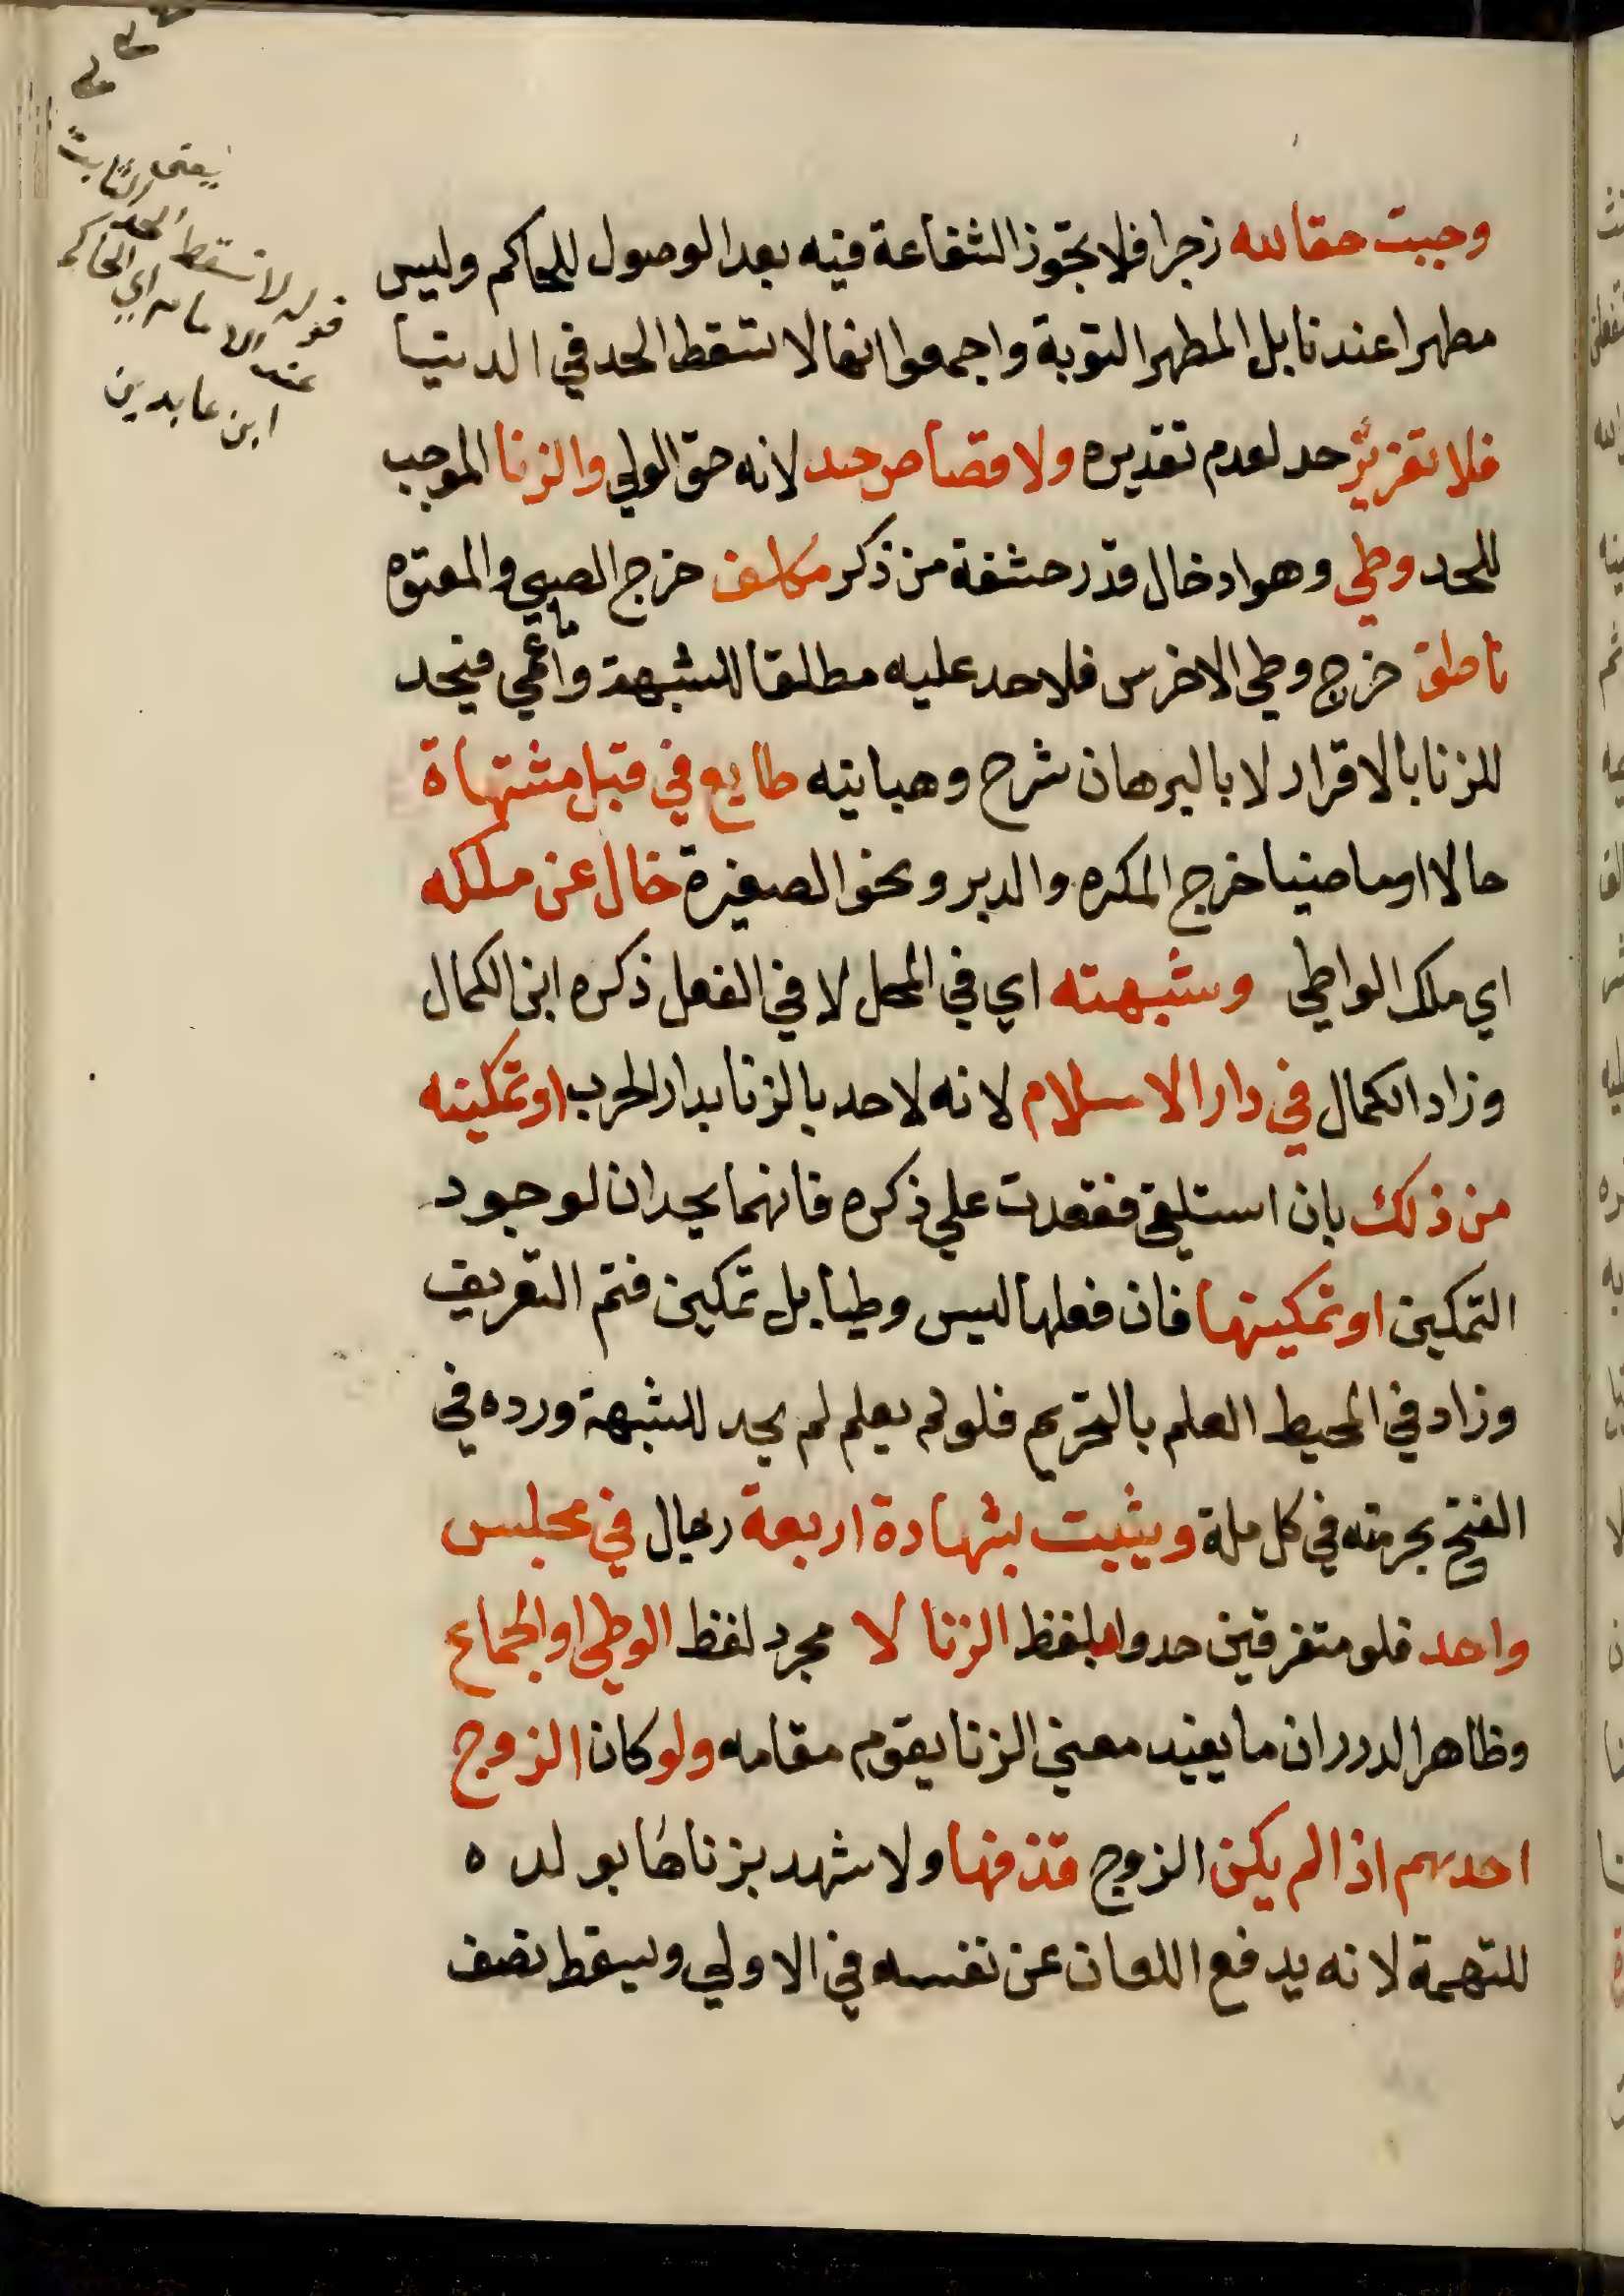 وجبت حقا لله زجرا فلا تجوز الشفاعة فيه بعد الوصول للحاكم وليس
مطهرا عندنا بل المطهر التوبة واجمعوا انها لا تسقط الحد في الدنيا
فلا تعزير حد لعدم تقديره ولا قصاص حد لانه حق الولي والزنا الموجب
للحد وطي وهو ادخال قدر حشفة من ذكر مكلف خرج الصبي والمعتوه
ناطق خرج وطي الاخرس فلا حد عليه مطلقا للشبهة واما عمي فيحد
للزنا بالاقرار لا بالبرهان شرح وهبانيه طايع في قبل مشتهاة
حالا او ماضيا خرج المكره والدبر ونحو الصغيرة خال عن ملكه
اي ملك الواطي وشبهته اي في المحل لا في الفعل ذكره ابن الكمال
وزاد الكمال في دار الاسلام لانه لا حد بالزنا بدار الحرب او تمكينه
من ذلك بان استلقى فقعدت علي ذكره فانهما يحدان لوجود
التمكين او تمكينها فان فعلها ليس وطيا بل تمكين فتم التعريف
وزاد في المحيط العلم بالتحريم فلو لم يعلم لم يحد للشبهة ورده في
الفتح بحرمته في كل ملة ويثبت بشهادة اربعة رجال في مجلس
واحد فلو متفرقين حدوا بلفظ الزنا لا مجرد لفظ الوطي او الجماع
وظاهر الدرر ان ما يفيد معني الزنا يقوم مقامه ولو كان الزوج
احدهم اذا لم يكن الزوج قذفها ولا شهد بزناها بولده
للتهمة لانه يدفع اللعان عن نفسه في الاولي ويسقط نصف
قوله لا تسقط الحد الثابت
عند الامام اي الحاكم
ابن عابدين